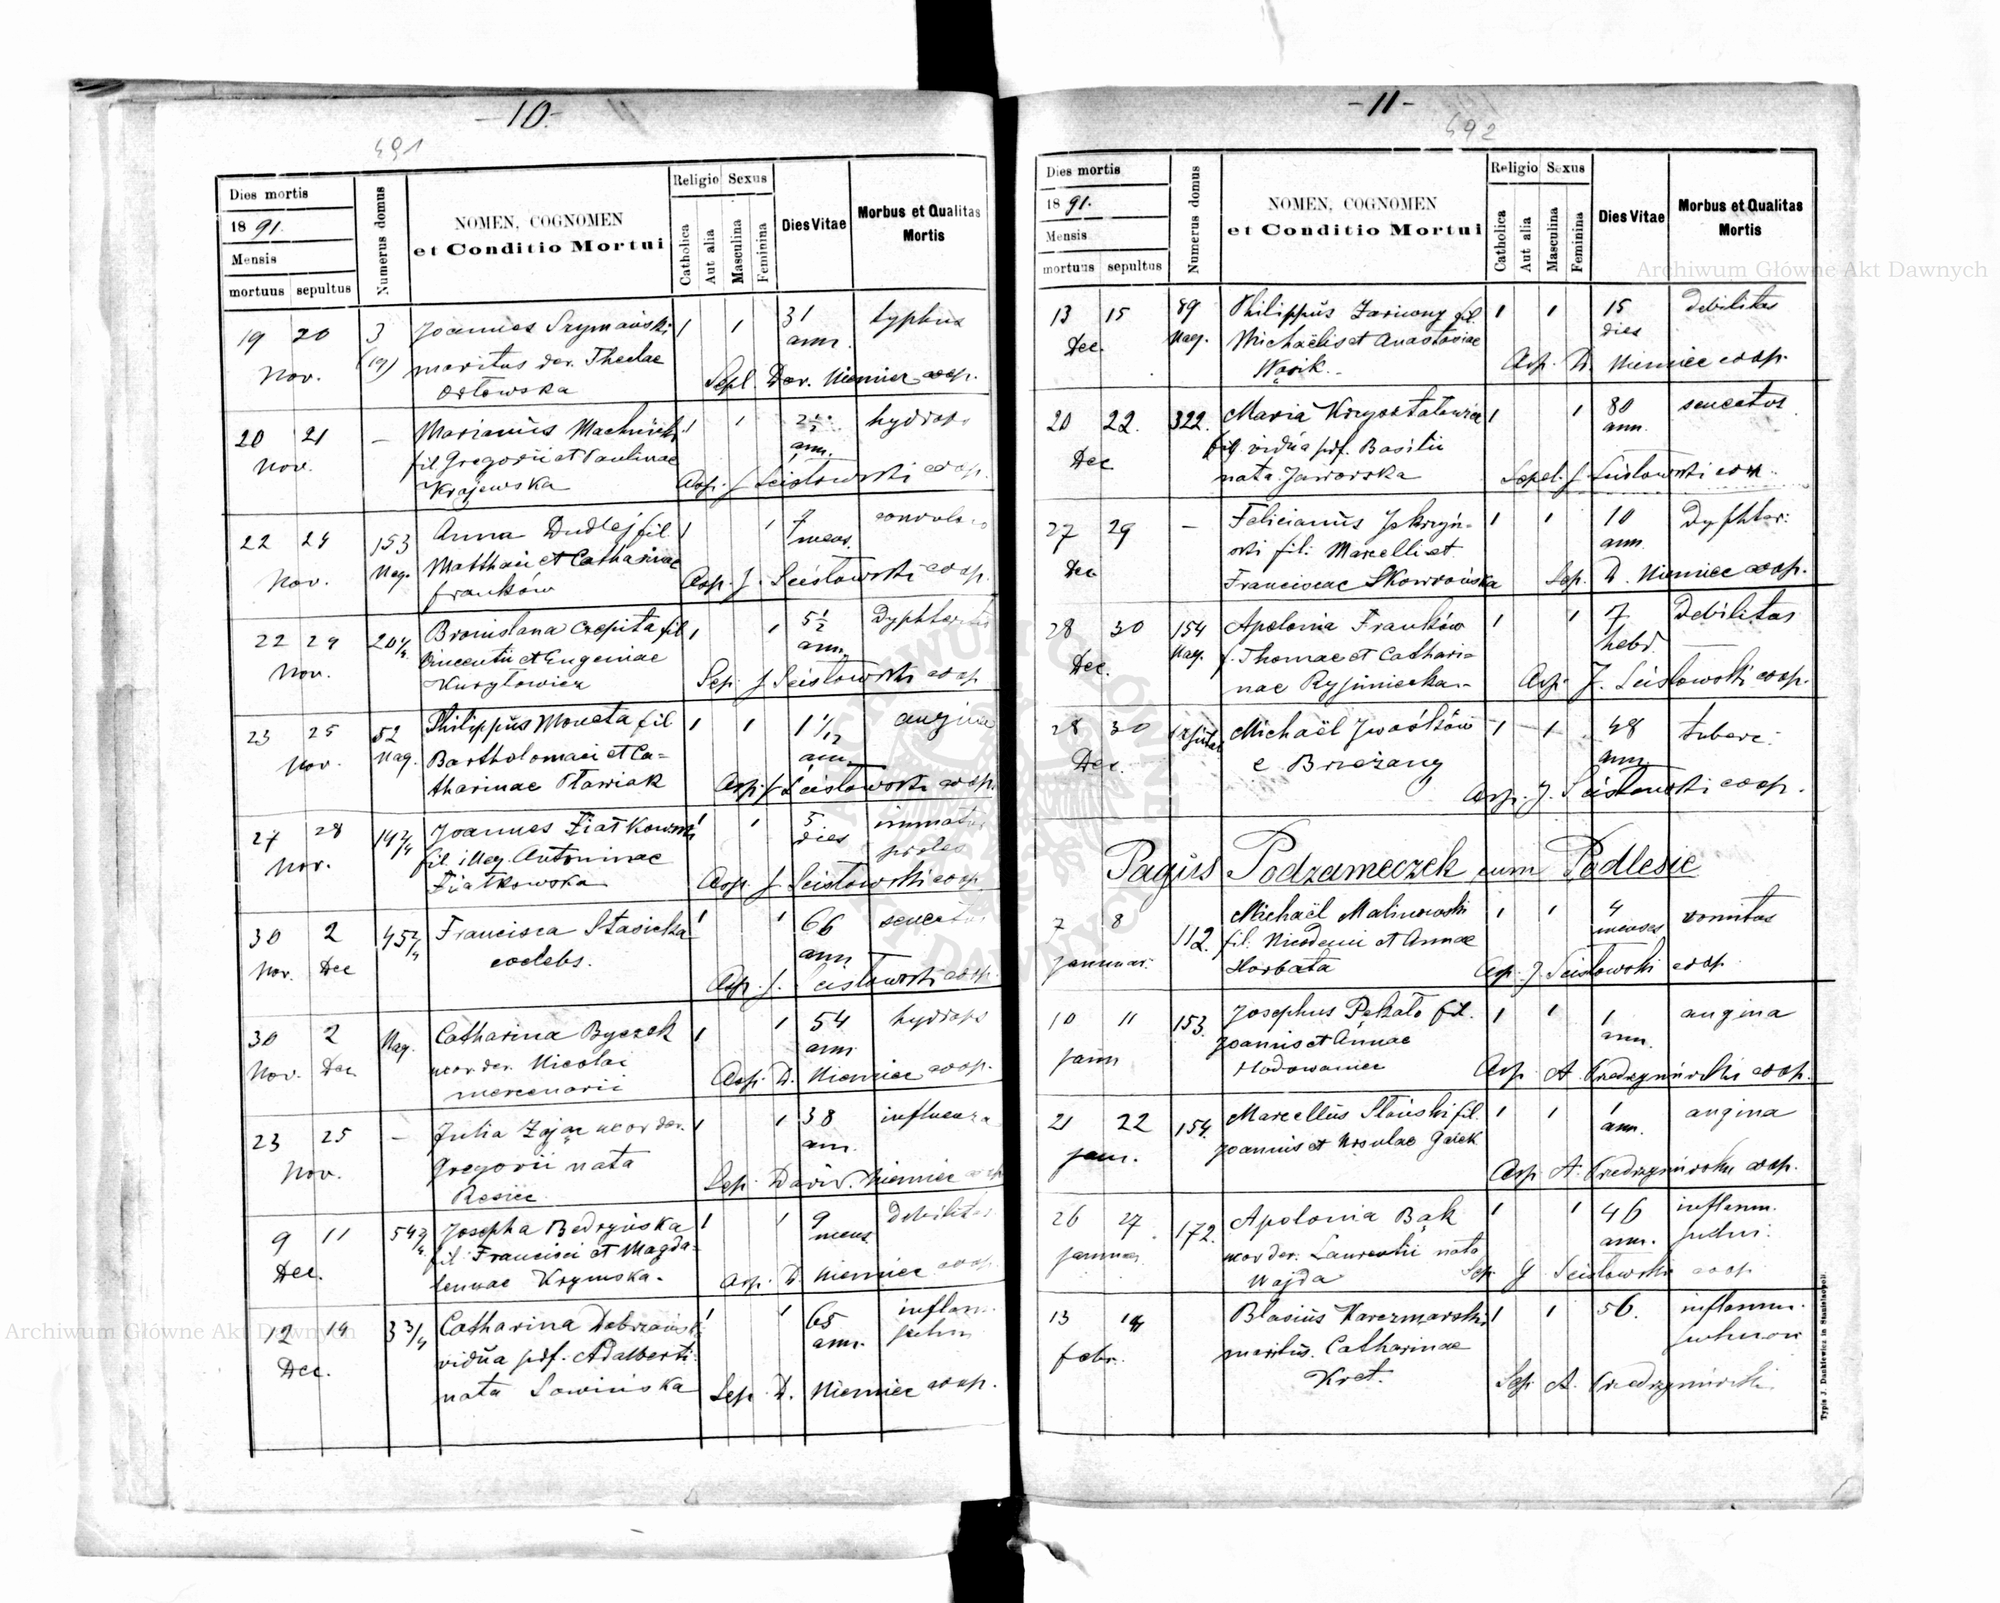 - 10 -
491
Dies mortis
1891.
Mensis
mortuus sepultus
Numerus domus
NOMEN, COGNOMEN
et Conditio Mortui
Religio Sexus
Catholica
Aut alia
Masculina
Feminina
Dies Vitae
Morbus et Qualitas
Mortis
19 20 3 Joannes Szymański 1 1 31 typhus
Nov. (19) maritus der. Theclae ann.
Orłowska Sepl. Dav. Niemiec coop.
20 21 - Marianus 1 1 2 hydrops
Nov. fil. Gregorii et Paulinae ann.
Krajewska Asp. J Ścisłowski coop.
22 24 153 Anna Dudlej fil 1 1 7
Nov. Nag. Matthaei et Catharinae mens.
Franków Asp. J. Ścisłowski coop.
22 24 Bronislava Czepita fil 1 1 5 1/2 Dyphteritis
Nov. Vincentii et Eugeniae ann.
Kuryłowicz Sep. J Ścisłowski coop
23 25 52 Philippus Moneta fil 1 1 1 1/12 angina
Nov. Nag. Bartholomaei et Ca= ann.
tharinae Pławiak Asp. J Ścisłowski coop.
27 28 Joannes Fiatkowski 1 1 5
Nov. fil. illeg. Antoninae dies proles
Fiatkowska Asp. J Ścisłowski coop
30 2 Francisca Stasicka 1 1 66 senectus
Nov. Dec coelebs. ann
Asp. J. Ścisłowski coop.
30 2 Nag. Catharina Byczek 1 1 54 hydrops
Nov. Dec uxor der. Nicolai ann
mercenarii Asp. D. Niemiec coop.
23 25 - Julia Zając uxor der. 1 1 38 influenza
Nov. Gregorii nata ann.
Sep. David. Niemiec coop
9 11 Josepha Bedryńska 1 1 9 Debilitas
Dec. fil. Francisci et Magda= mens.
lennae Krymska. Asp. D. Niemiec coop.
12 14 3 3/4 Catharina Dobrzańska 1 1 65 inflam.
Dec. vidua pdf. Adalberti ann. pulm
nata Sawińska Sep. D. Niemiec coop.
- 11 -
492
Dies mortis
1891.
Mensis
mortuus sepultus
Numerus domus
NOMEN, COGNOMEN
et Conditio Mortui
Religio Sexus
Catholica
Aut alia
Masculina
Feminina
Dies Vitae
Morbus et Qualitas
Mortis
13 15 89 Philippus fil. 1 1 15 debilitas
Dec. Nag. Michaëlis et Anastasiae dies
Wąsik. Asp. D. Niemiec coop.
20 22. 322. Maria Kryształowicz 1 1 80 senectus
Dec vidua pdf. Basilii ann.
nata Jaworska Sepel. J Ścisłowski coop.
27 29 - Felicianus 1 1 10 Dyphter:
Dec ski fil: Marcelli et ann.
Franciscae Skowrońska Sep. D. Niemiec coop.
28 30 154 Apolonia Franków 1 1 7 Debilitas
Dec. Nag. f. Thomae et Cathari= hebd.
nae Asp. J. Ścisłowski coop.
28 30 Michaël Iwaśków 1 1 48 tuberc.
Dec. e Brzeżany ann
Asp. J. Ścisłowski coop.
Pagus Podzameczek cum Podlesie
7 8 112. Michaël Malinowski 1 1 4 vomitus
Januar. fil. Nicodemi et Annae menses
Horbata Asp. J. Ścisłowski coop
10 11 153. Josephus Pękało fil. 1 1 1 angina
Jann Joannis et Annae ann.
Hodowaniec Asp. A. coop.
21 22 154. Marcellus Słoński fil. 1 1 1 angina
Jann. Joannis et Ursulae ann.
Asp. A. coop.
26 27. 172. Apolonia Bąk 1 1 46 inflamm.
Januar uxor der. Laurentii nata ann. pulm.
Wajda Sep. J Ścisłowski coop
13 14 Blasius Karczmarski 1 1 56. inflamm.
febr. maritus. Catharinae pulmon
Kret. Sep. A.
Typis J. Dankiewicz in Stanislaopoli.
Archiwum Główne Akt Dawnych
Archiwum Główne Akt Dawnych
ARCHIWUM GŁÓWNE AKT DAWNYCH